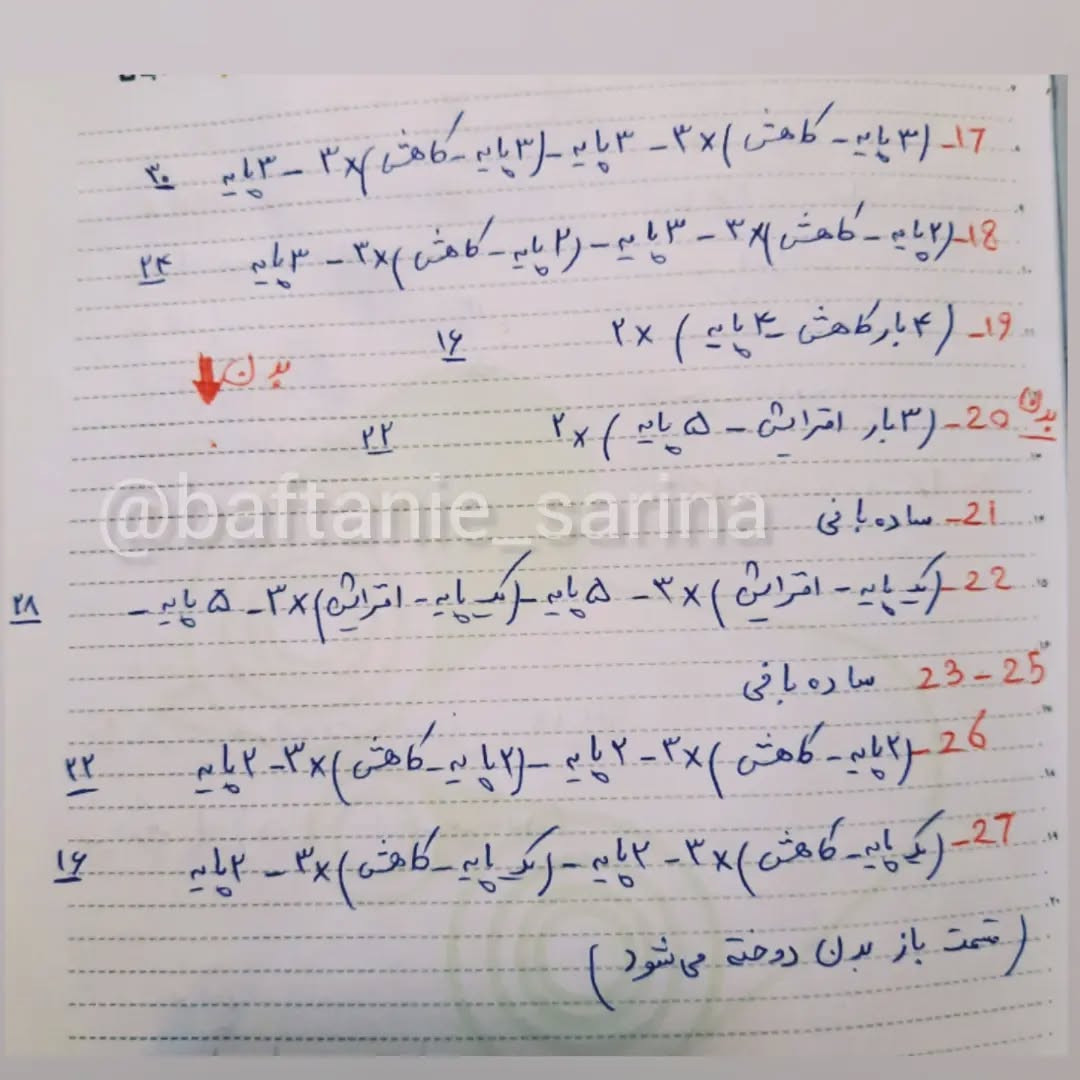 17- (۳ پایه - کاهش) ×۳ - ۳ پایه - (۳ پایه - کاهش) ×۳ - ۳ پایه ۳۰
18- (۲ پایه - کاهش) ×۳ - ۳ پایه - (۲ پایه - کاهش) ×۳ - ۳ پایه ۲۴
19- (۴ بار کاهش - ۴ پایه) ×۲ ۱۶
بدن
بدن 20- (۳ بار افزایش - ۵ پایه) ×۲ ۲۲
@baftanie_sarina
21- ساده بافی
22- (یک پایه - افزایش) ×۳ - ۵ پایه - (یک پایه - افزایش) ×۳ - ۵ پایه - ۲۸
23-25 ساده بافی
26- (۲ پایه - کاهش) ×۳ - ۲ پایه - (۲ پایه - کاهش) ×۳ - ۲ پایه ۲۲
27- (یک پایه - کاهش) ×۳ - ۲ پایه - (یک پایه - کاهش) ×۳ - ۲ پایه ۱۶
(قسمت باز بدن دوخته می‌شود)